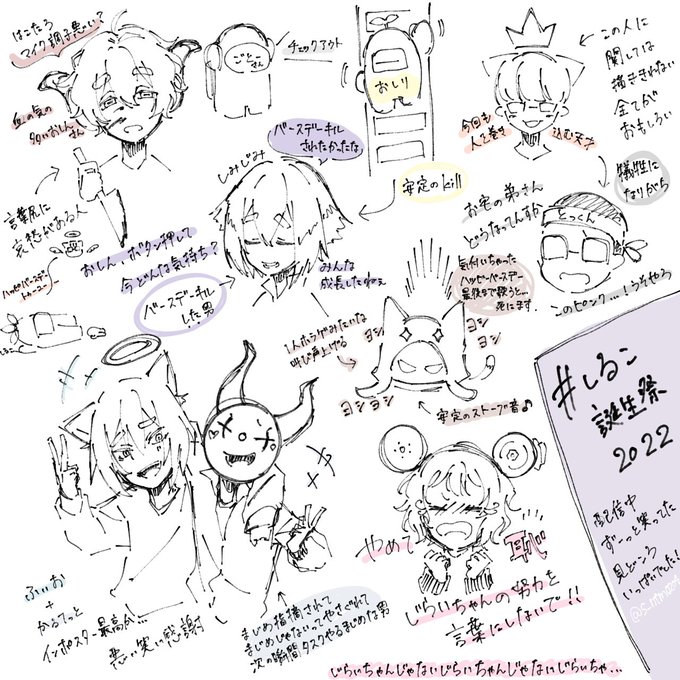 はこたろ
マイク調子悪い?
血の気の
多いおしん
さん
言葉尻に
哀愁がある人
ハッピバースデー
トゥーユー
ごとーさん
チェックアウト
おしり
バースデーキル
されたかったな
しみじみ
安定のkill
この人に
関しては
描ききれない
全てが
おもしろい
今回も
人を巻き
込む天才
犠牲に
なりがち
とっくん
お宅の弟さん
どうなってんすか
このピンク…!うそやろ
おしん ボタン押して
今どんな気持ち?
バースデーキル
した男
みんな
成長したねぇ
気付いちゃった
ハッピーバースデー
最後まで歌うと…
死にます
1人ホラゲみたいな
叫び声上げる
ヨシ
ヨシ
ヨシヨシ
安定のストーブ着
ふぃお
+
かるてっと
インポスター最高か…
悪い笑い感謝
まじめ指摘されて
まじめじゃないってやさぐれて
次の瞬間タスクやるまじめな男
やめて
じらいちゃんの努力を
言葉にしないで!!
じらいちゃんじゃないじらいちゃんじゃないじらいちゃ…
#しるこ
誕生祭
2022
配信中
ずーっと笑ってた
見どころ
いっぱいでした!